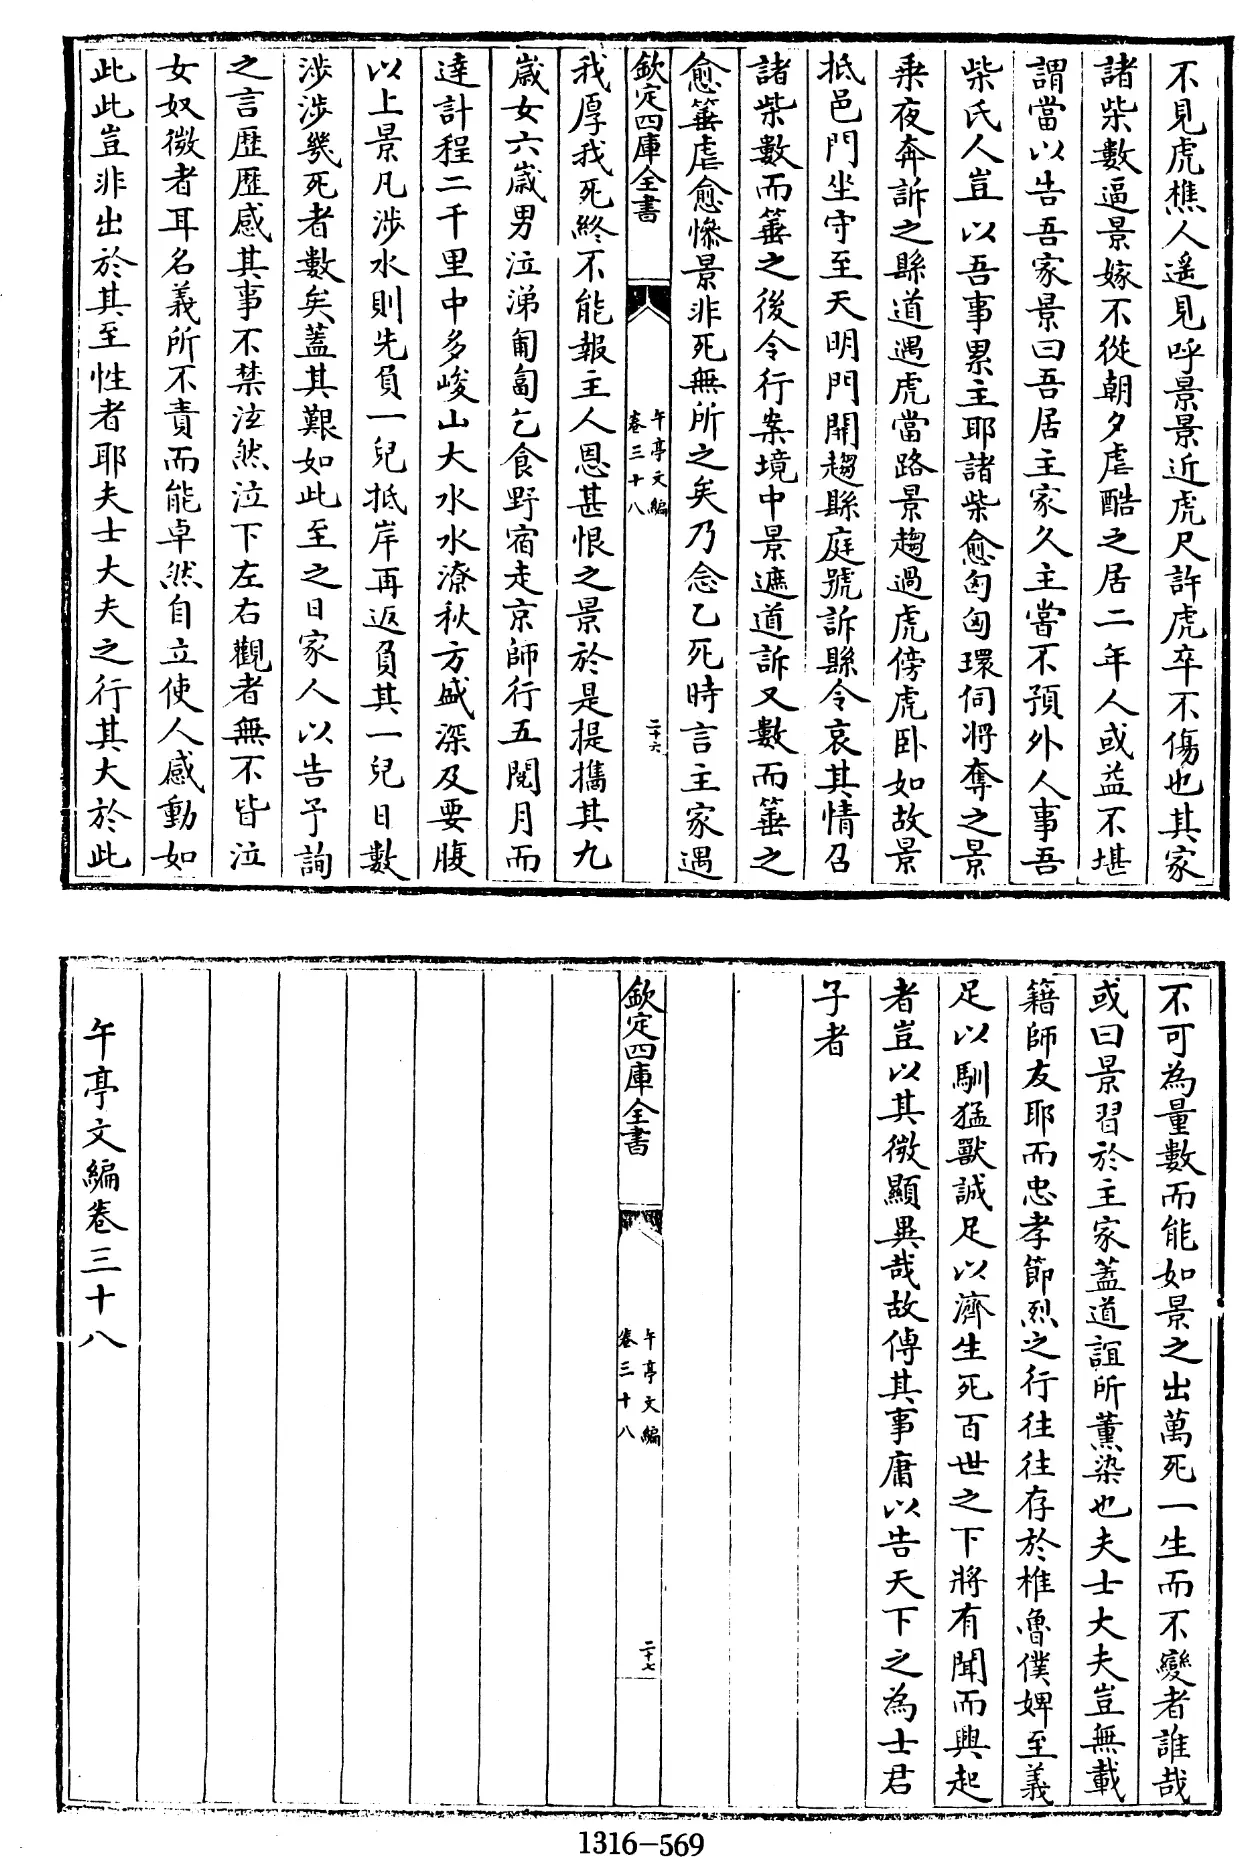 不見虎樵人遥見呼景景近虎尺許虎卒不傷也其家
諸柴數逼景嫁不從朝夕虐酷之居二年人或益不堪
謂當以告吾家景曰吾居主家久主嘗不預外人事吾
柴氏人豈以吾事累主耶諸柴愈匈匈環伺將奪之景
乗夜奔訴之縣道遇虎當路景趨過虎傍虎卧如故景
抵邑門坐守至天明門開趨縣庭號訴縣令哀其情召
諸柴數而箠之後令行案境中景遮道訴又數而箠之
愈箠虐愈慘景非死無所之矣乃念乙死時言主家遇
欽定四庫全書
午亭文編
卷三十八
二十六
我厚我死終不能報主人恩甚恨之景於是提攜其九
歲女六歲男泣涕匍匐乞食野宿走京師行五閱月而
達計程二千里中多峻山大水水潦秋方盛深及要腹
以上景凡涉水則先負一兒抵岸再返負其一兒日數
涉涉幾死者數矣蓋其艱如此至之日家人以告予詢
之言歷歷感其事不禁泫然泣下左右觀者無不皆泣
女奴微者耳名義所不責而能卓然自立使人感動如
此此豈非出於其至性者耶夫士大夫之行其大於此
不可為量數而能如景之出萬死一生而不變者誰哉
或曰景習於主家蓋道誼所薰染也夫士大夫豈無載
籍師友耶而忠孝節烈之行往往存於椎魯僕婢至義
足以馴猛獸誠足以濟生死百世之下將有聞而興起
者豈以其微顯異哉故傳其事庸以告天下之為士君
子者
欽定四庫全書
午亭文編
卷三十八
二十七
午亭文編卷三十八
1316-569